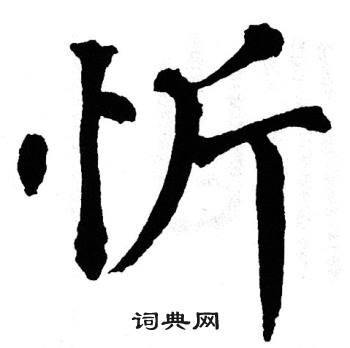 忻
词典网